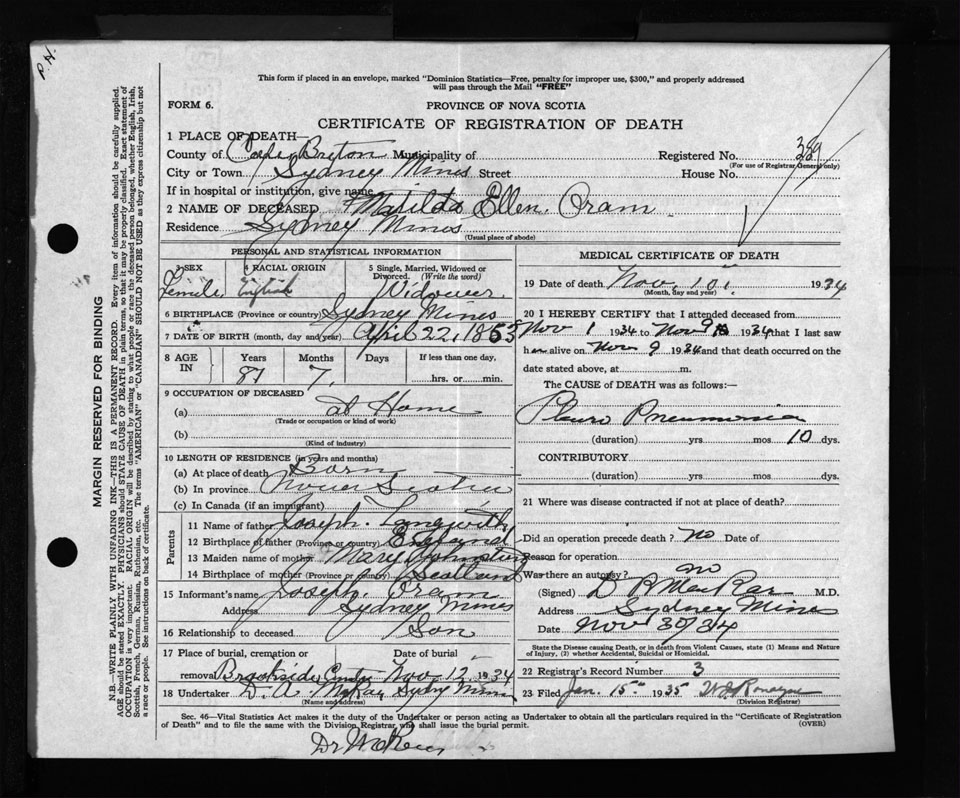 P.H.
This form if placed in an envelope, marked "Dominion Statistics—Free, penalty for improper use, $300," and properly addressed
will pass through the Mail "FREE"
FORM 6.
PROVINCE OF NOVA SCOTIA
CERTIFICATE OF REGISTRATION OF DEATH
1 PLACE OF DEATH—
County of Cape Breton Municipality of
Registered No. 389
(For use of Registrar General only)
City or Town Sydney Mines Street
House No.
If in hospital or institution, give name
2 NAME OF DECEASED Matilda Ellen Oram
Residence Sydney Mines
(Usual place of abode)
PERSONAL AND STATISTICAL INFORMATION
3 SEX
Female
4 RACIAL ORIGIN
English
5 Single, Married, Widowed or
Divorced. (Write the word)
Widower
6 BIRTHPLACE (Province or country) Sydney Mines
7 DATE OF BIRTH (month, day and year) April 22, 1853
8 AGE
IN
Years
81
Months
7
Days
If less than one day.
hrs. or min.
9 OCCUPATION OF DECEASED
(a) at Home
(Trade or occupation or kind of work)
(b)
(Kind of industry)
10 LENGTH OF RESIDENCE (in years and months)
(a) At place of death Born
(b) In province Nova Scotia
(c) In Canada (if an immigrant)
Parents
11 Name of father Joseph
12 Birthplace of father (Province or country) England
13 Maiden name of mother Mary Johnston
14 Birthplace of mother (Province or country) Scotland
15 Informant's name Joseph Oram
Address Sydney Mines
16 Relationship to deceased Son
17 Place of burial, cremation or
removal Brookside Cemty
Date of burial
Nov. 12, 1934
18 Undertaker D. A. McKay Sydney Mines
(Name and address)
MEDICAL CERTIFICATE OF DEATH
19 Date of death Nov. 1934
(Month, day and year)
20 I HEREBY CERTIFY that I attended deceased from
Nov 1 1934 to Nov 9 1934 that I last saw
h alive on Nov 9 1934 and that death occurred on the
date stated above, at m.
The CAUSE OF DEATH was as follows:—
Pleuro Pneumonia
(duration) yrs mos 10 dys.
CONTRIBUTORY
(duration) yrs mos dys.
21 Where was disease contracted if not at place of death?
Did an operation precede death? no Date of
Reason for operation
Was there an autopsy? no
(Signed) M.D.
Address Sydney Mines
Date Nov 30/34
State the Disease causing Death, or in death from Violent Causes, state (1) Means and Nature
of Injury, (2) whether Accidental, Suicidal or Homicidal.
22 Registrar's Record Number 3
23 Filed Jan. 15th 1935
(Division Registrar)
Sec. 46—Vital Statistics Act makes it the duty of the Undertaker or person acting as Undertaker to obtain all the particulars required in the "Certificate of Registration
of Death" and to file the same with the Division Registrar who shall issue the burial permit.
(OVER)
MARGIN RESERVED FOR BINDING
N.B.—WRITE PLAINLY WITH UNFADING INK—THIS IS A PERMANENT RECORD. Every item of information should be carefully supplied.
AGE should be stated EXACTLY. PHYSICIANS should STATE CAUSE OF DEATH in plain terms, so that it may be properly classified. Exact statement of
OCCUPATION is very important. RACIAL ORIGIN will be described by stating to what people or race the deceased person belonged, whether English, Irish,
Scottish, French, German, Russian, Ruthenian, etc. The terms "AMERICAN" or "CANADIAN" SHOULD NOT BE USED as they express citizenship but not
a race or people. See instructions on back of certificate.